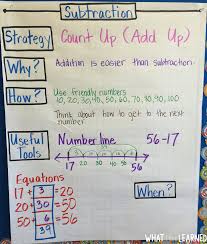 Subtraction
Strategy Count Up (Add Up)
Why? Addition is easier than subtraction
How? Use friendly numbers
10, 20, 30, 40, 50, 60, 70, 80, 90, 100
Think about how to get to the next number
Useful Tools Number line 56-17
17 56
Equations
17 + 3 = 20
20 + 30 = 50
50 + 6 = 56
39
When?
WHAT LEARNED